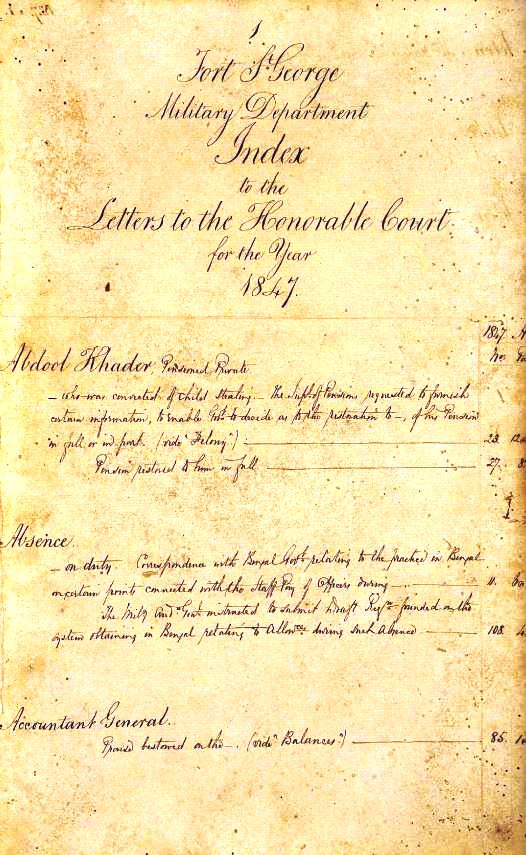 1
Fort St. George
Military Department
Index
to the
Letters to the Honorable Court
for the Year
1847.
1847
No.
Abdool Khader, Pensioned Private
— who was convicted of Child Stealing — The Supt. of Pensions requested to furnish
certain information, to enable Govt. to decide as to the restoration to —, of his Pension
in full or in part. (vide "Felony") 23.
Pension restored to him in full 27. 8
Absence.
— on duty. Correspondence with Bengal Govt. relating to the practice in Bengal
on certain points connected with the Staff Pay of Officers during — 11.
The Mily. Audr. Genl. instructed to submit draft Regns. founded on the
system obtaining in Bengal relating to Allowces. during such absence 108.
Accountant General.
Praise bestowed on the —. (vide "Balances") 85.